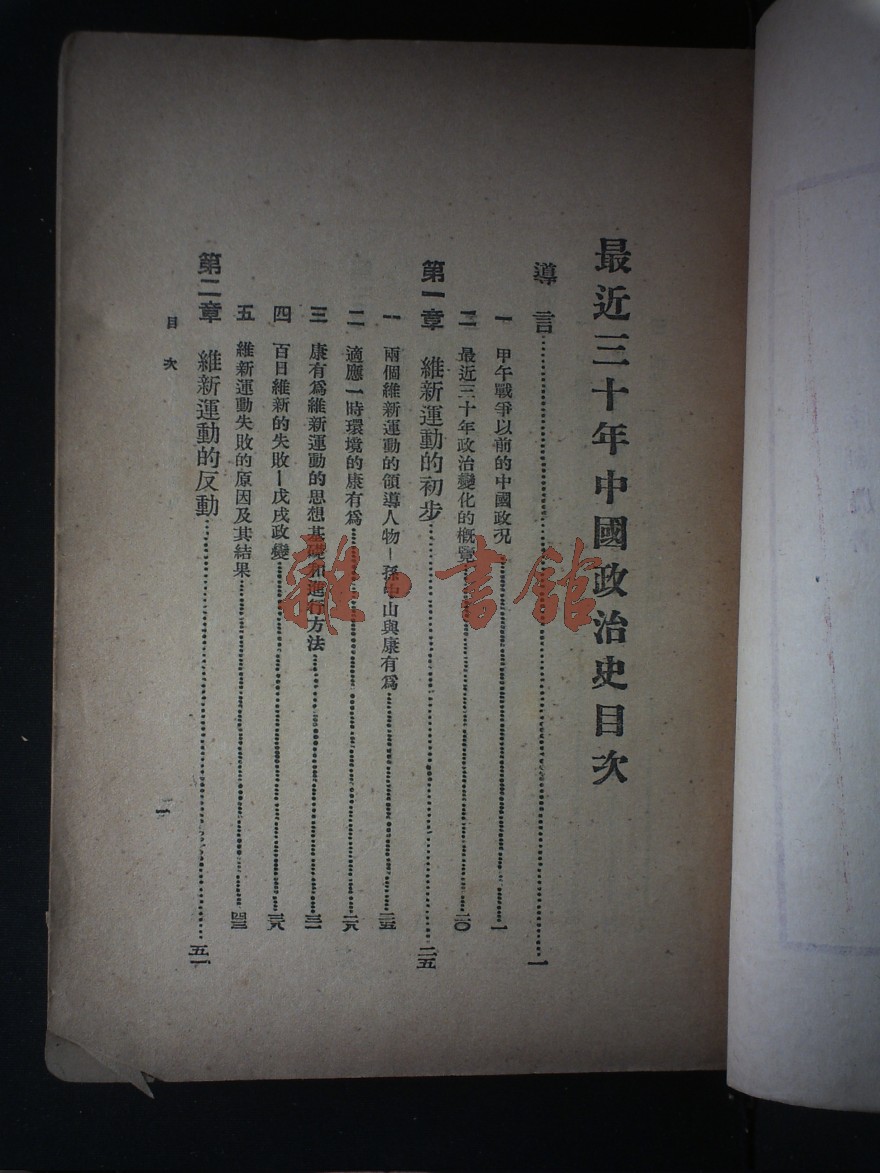 最近三十年中國政治史目次
導言……一
一 甲午戰爭以前的中國政况……一
二 最近三十年政治變化的概覽……二〇
第一章 維新運動的初步……二五
一 兩個維新運動的領導人物—孫中山與康有爲……二五
二 適應一時環境的康有爲……二八
三 康有爲維新運動的思想基礎和進行方法……三二
四 百日維新的失敗—戊戌政變……三八
五 維新運動失敗的原因及其結果……四三
第二章 維新運動的反動……五一
目次
一
雜·書館